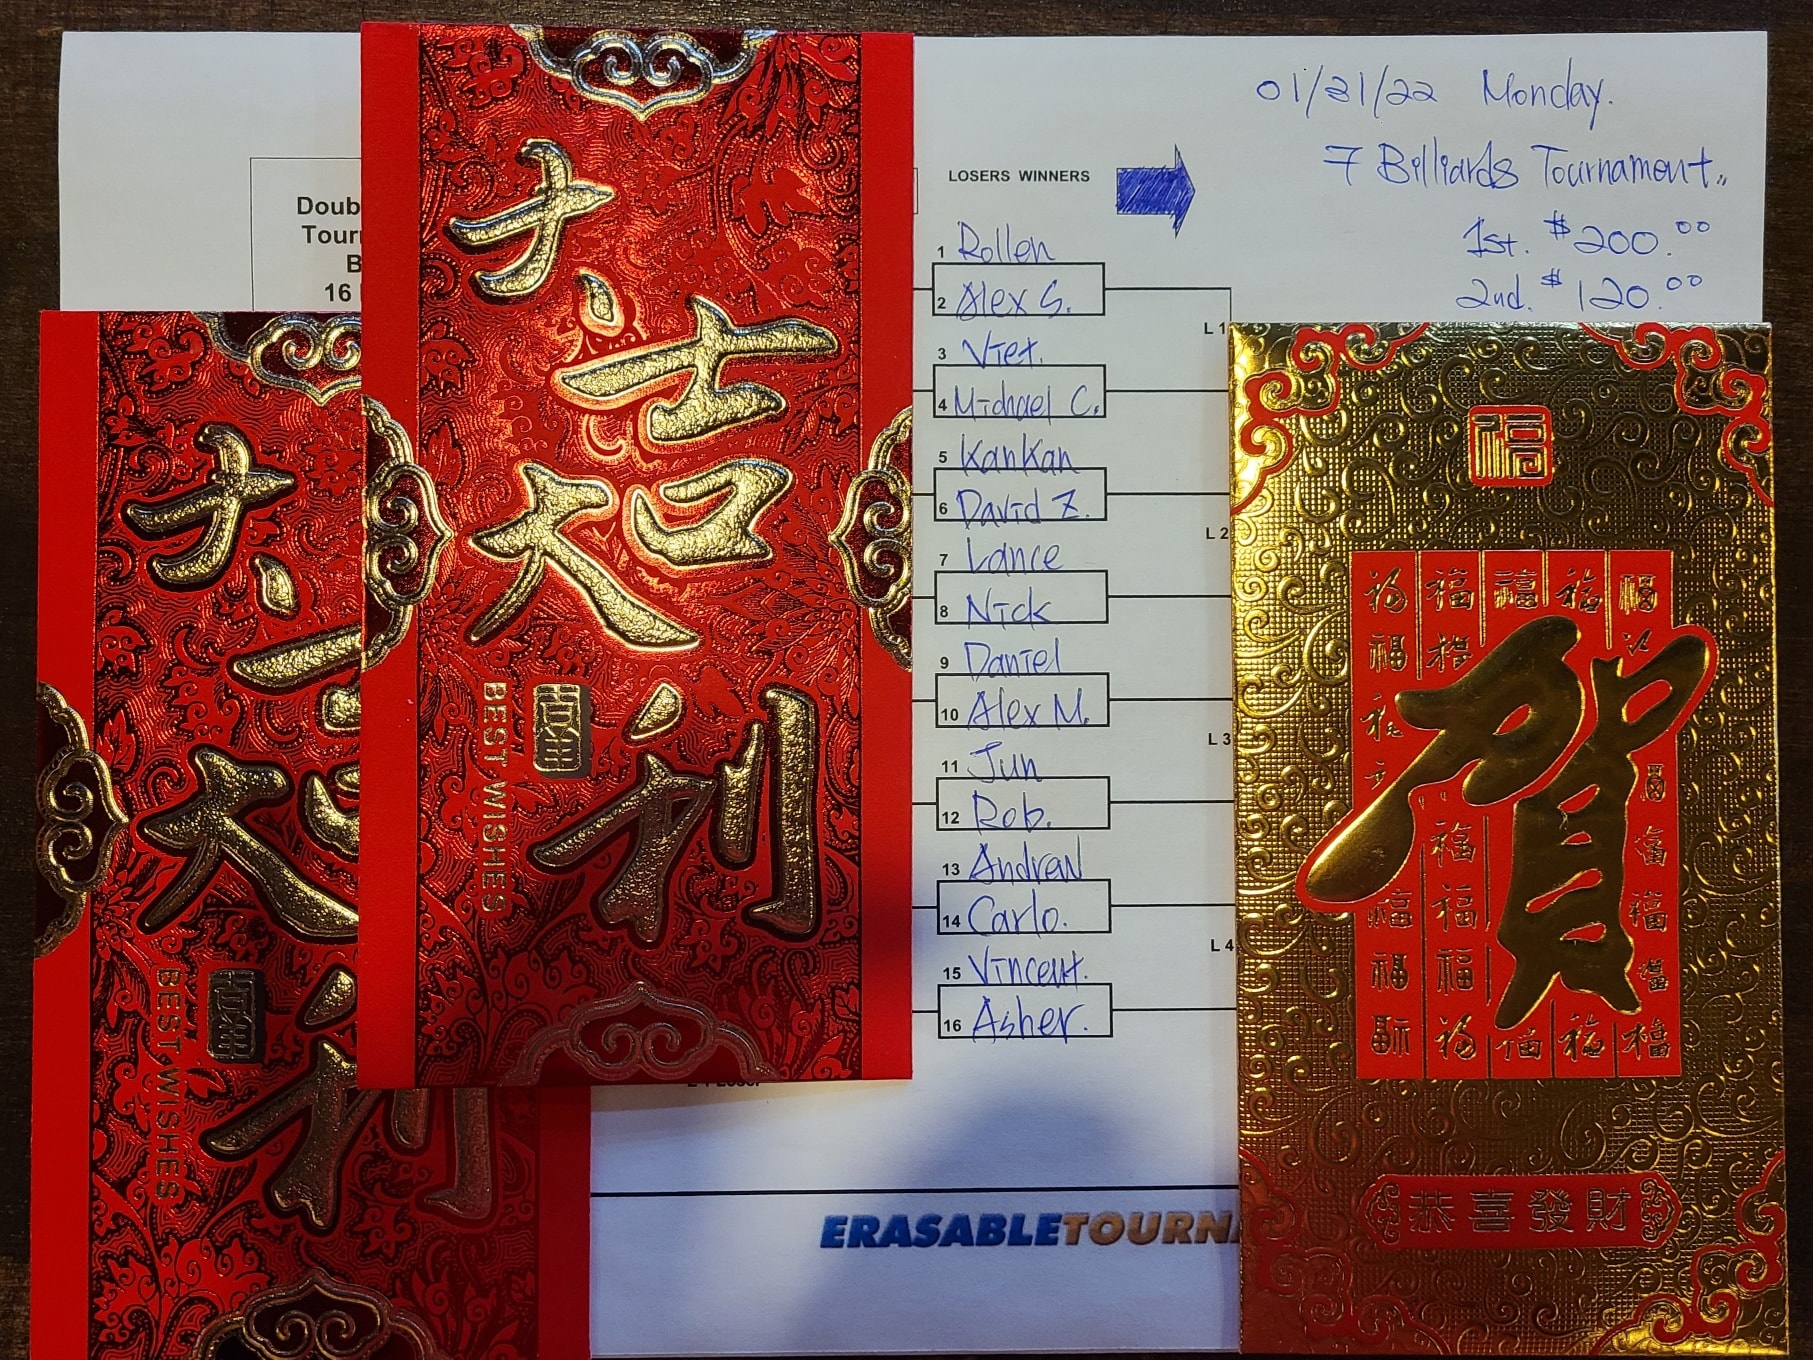 01/31/22 Monday.
7 Billiards Tournament..
1st. $200.00
2nd. $120.00
Doub
Tour
B
16
LOSERS WINNERS
1 Rollen
2 Alex S.
L 1
3 Viet.
4 Michael C.
5 KanKan
6 David Z.
L 2
7 Lance
8 Nick
9 Daniel
10 Alex M.
L 3
11 Jun
12 Rob.
13 Andrew
14 Carlo.
L 4
15 Vincent.
16 Asher.
ERASABLETOURNA
大吉大利
BEST WISHES
大吉大利
BEST WISHES
福
福福福福福
賀
恭喜發財